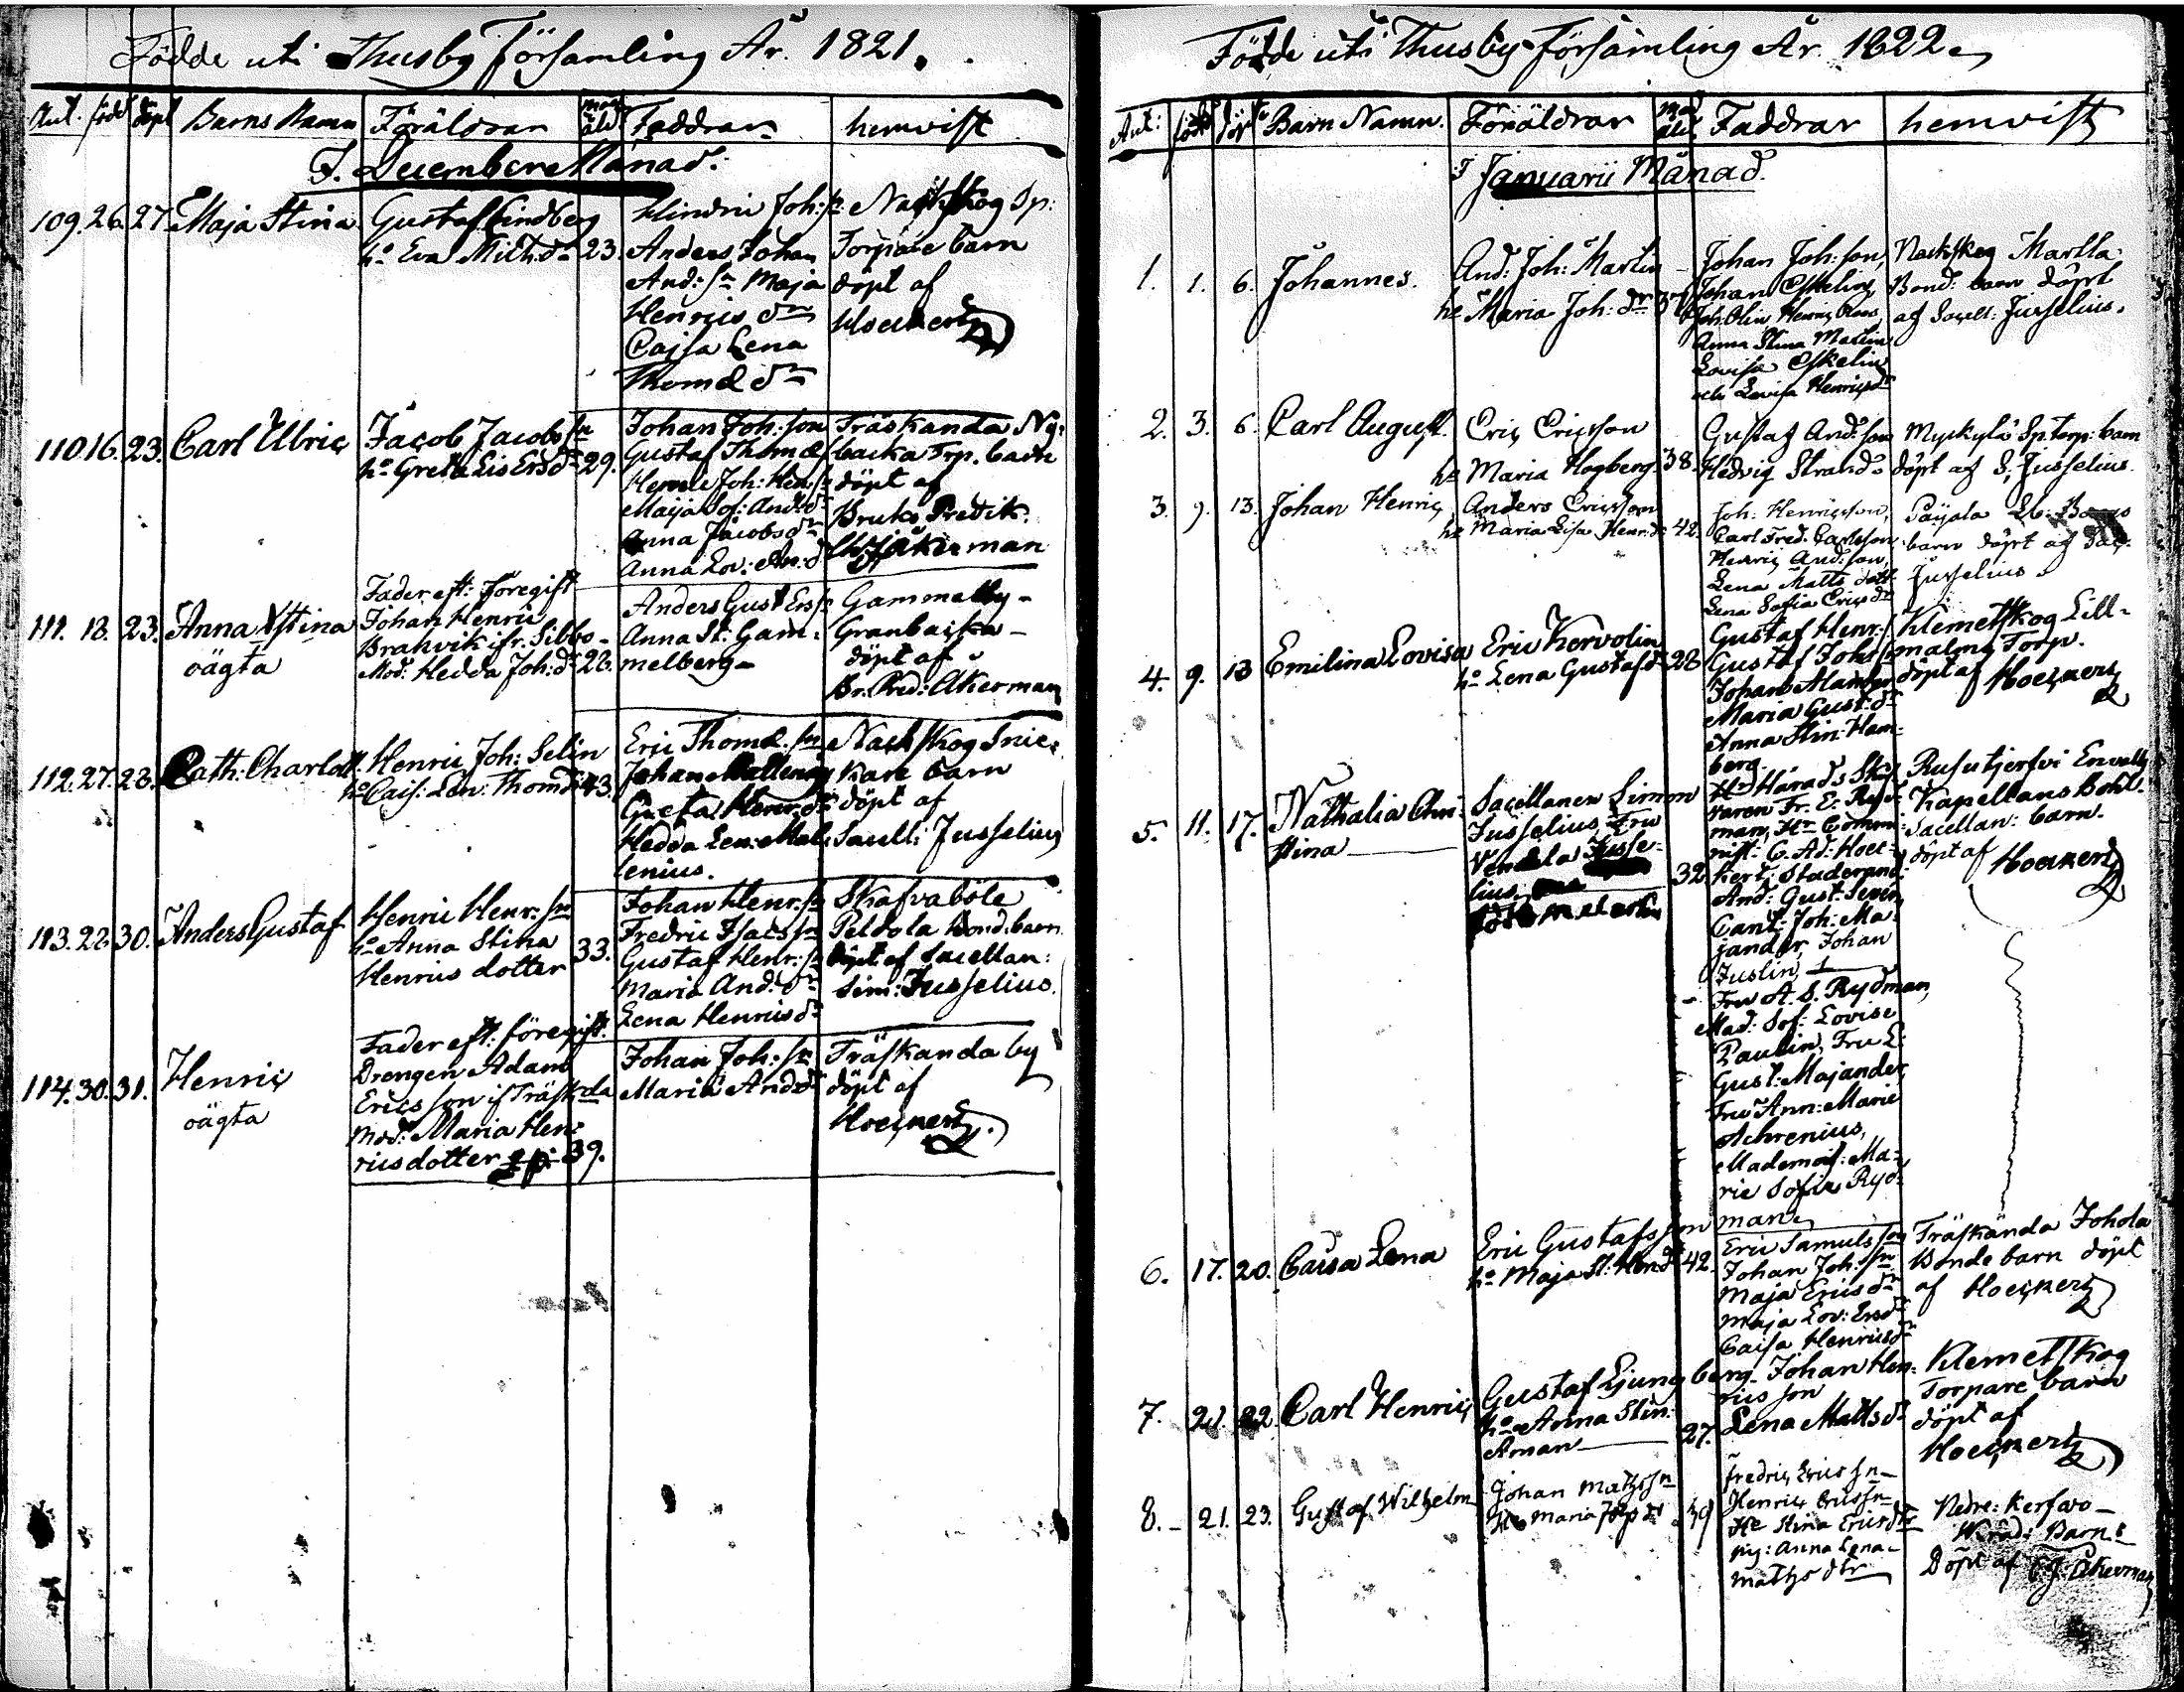 Födde uti Thusby Församling År. 1821.
Ant. född döpt Barns Namn Föräldrar mod. åld Faddrar hemvist
I. Decembere Månad.
109. 26. 27. Maja Stina
Gustaf Lindberg
ho Eva Mich:dr 23.
Hindric Joh:sn
Anders Johan
And:sn Maja
Henrics dr
Cajsa Lena
Thomæ dr
Nackskog Sp:
Torpare barn
döpt af
Hoeckert
110. 16. 23. Carl Ulric
Jacob Jacobssn
ho Greta Lis Ersdr 29.
Johan Joh:son
Gustaf Thomæ
Henric Joh: Hen:sn
Maija Sof: And:dr
Anna Jacobsdr
Anna Lov: An:d
Träskanda Ny:
backa Trp. barn
döpt af
Bruks Predik.
Åkerman
111. 18. 23. Anna Stina
oägta
Fader eft: föregift
Johan Henric
Brahvik ifr. Sibbo
Mod: Hedda Joh:dr 28.
Anders Gust Erssn
Anna St: Gam:
melberg
Gammelby
Granbacka
döpt af
Br. Pred: Åkerman
112. 27. 28. Cath: Charlott.
Henric Joh: Selin
ho Cais: Len: Thomdr 43.
Eric Thomæ sn
Johan Mallenius
Greta Henr:dr
Hedda Len: Mal:
lenius.
Nackskog Snic:
kare barn
döpt af
Sacell: Jusselius
113. 28. 30. Anders Gustaf
Henric Henr:sn
ho Anna Stina
Henrics dotter 33.
Johan Henr:sn
Fredric Isacssn
Gustaf Henr:sn
Maria And:dr
Lena Henricsdr
Skafvaböle
Peldola Bond:barn
döpt af Sacellan:
Sim: Jusselius.
114. 30. 31. Henric
oägta
Fader eft: föregift.
Drengen Adam
Ericsson if Träsknda
Mod: Maria Hen:
ricsdotter 39.
Johan Joh:sn
Maria Andrdr
Träskanda by
döpt af
Hoeckert.
Födde uti Thusby Församling År 1822.
Ant: född döpt Barn Namn. Föräldrar Mod åld Faddrar hemvist
I Januarii Månad.
1. 1. 6. Johannes.
And: Joh: Martin
he Maria Joh:dr 37
Johan Joh:son,
Johan Eskelin,
Joh: Olin Henric Claas
Anna Stina Matlin
Lovisa Eskelin
och Lovisa Henricsdr
Nackskog Martla
Bond: barn döpt
af Sacell: Jusselius.
2. 3. 6. Carl August.
Eric Ericsson
he Maria Hogberg. 38.
Gustaf And:son
Hedvig Strand
Myckylä Sp. torp: barn
döpt af S. Jusselius.
3. 9. 13. Johan Henric
Anders Ericsson
he Maria Lisa Henr:dr 42.
Joh: Henricsson,
Carl Fred. Carlsson,
Henric And:son,
Lena Matts dott.
Lena Sofia Ericsdr
Paijala
barn döpt af Sac:
Jusselius.
4. 9. 13 Emilina Lovisa
Eric Kervolin
ho Lena Gustafdr 28
Gustaf Henr:sn
Gustaf Joh:sn
Johan Alamber
Maria Gust:dr
Anna Stin: Ham:
berg.
Klemetskog Lill-
malms Torp.
döpt af Hoeckert
5. 11. 17. Nathalia Chri:
stina
Sacellanen Simon
Jusselius, Fru
Vendela Jusse:
lius, 32
född Melartin
Hr Härads Skrif
varen Fr. E. Ryd:
man, Hr Commi:
nist: C. Ad: Hoec:
kert, Studerand:
And: Gust: Levin,
Cant: Joh: Ma:
jander, Johan
Juslin,
Fru A. S. Rydman,
Mad: Sof: Lovise
Paulin, Fru E.
Gust: Majander,
Fru Ann: Marie
Achrenius,
Mademois: Ma:
rie Sofie Ryd:
man.
Rusutjerfvi Ervalls
Kapellans Bohl.
Sacellan: barn.
döpt af Hoeckert
6. 17. 20. Caisa Lena
Eric Gustafsson
ho Maja St: Hendr 42.
Eric Samulsson
Johan Joh:sn
Maja Ericsdr
Maja Lov: Ersdr
Caisa Henricsdr
Träskända Johola
Bonde barn döpt
af Hoeckert
7. 21. 22. Carl Henric
Gustaf Ljungberg
ho Anna Stin:
Aman 27.
Johan Hen:
ricsson
Lena Mattsdr
Klemetskog
Torpare barn
döpt af
Hoeckert
8. 21. 23. Gustaf Wilhelm
Johan Matssn
Ho Maria Josepsdr 39
Fredric Ericssn
Henric Ericssn
He Stina Ericsdtr
pig: Anna Lena
Matsdtr
Nedre: Kerfwo
Barn:
Döpt af Åkerman